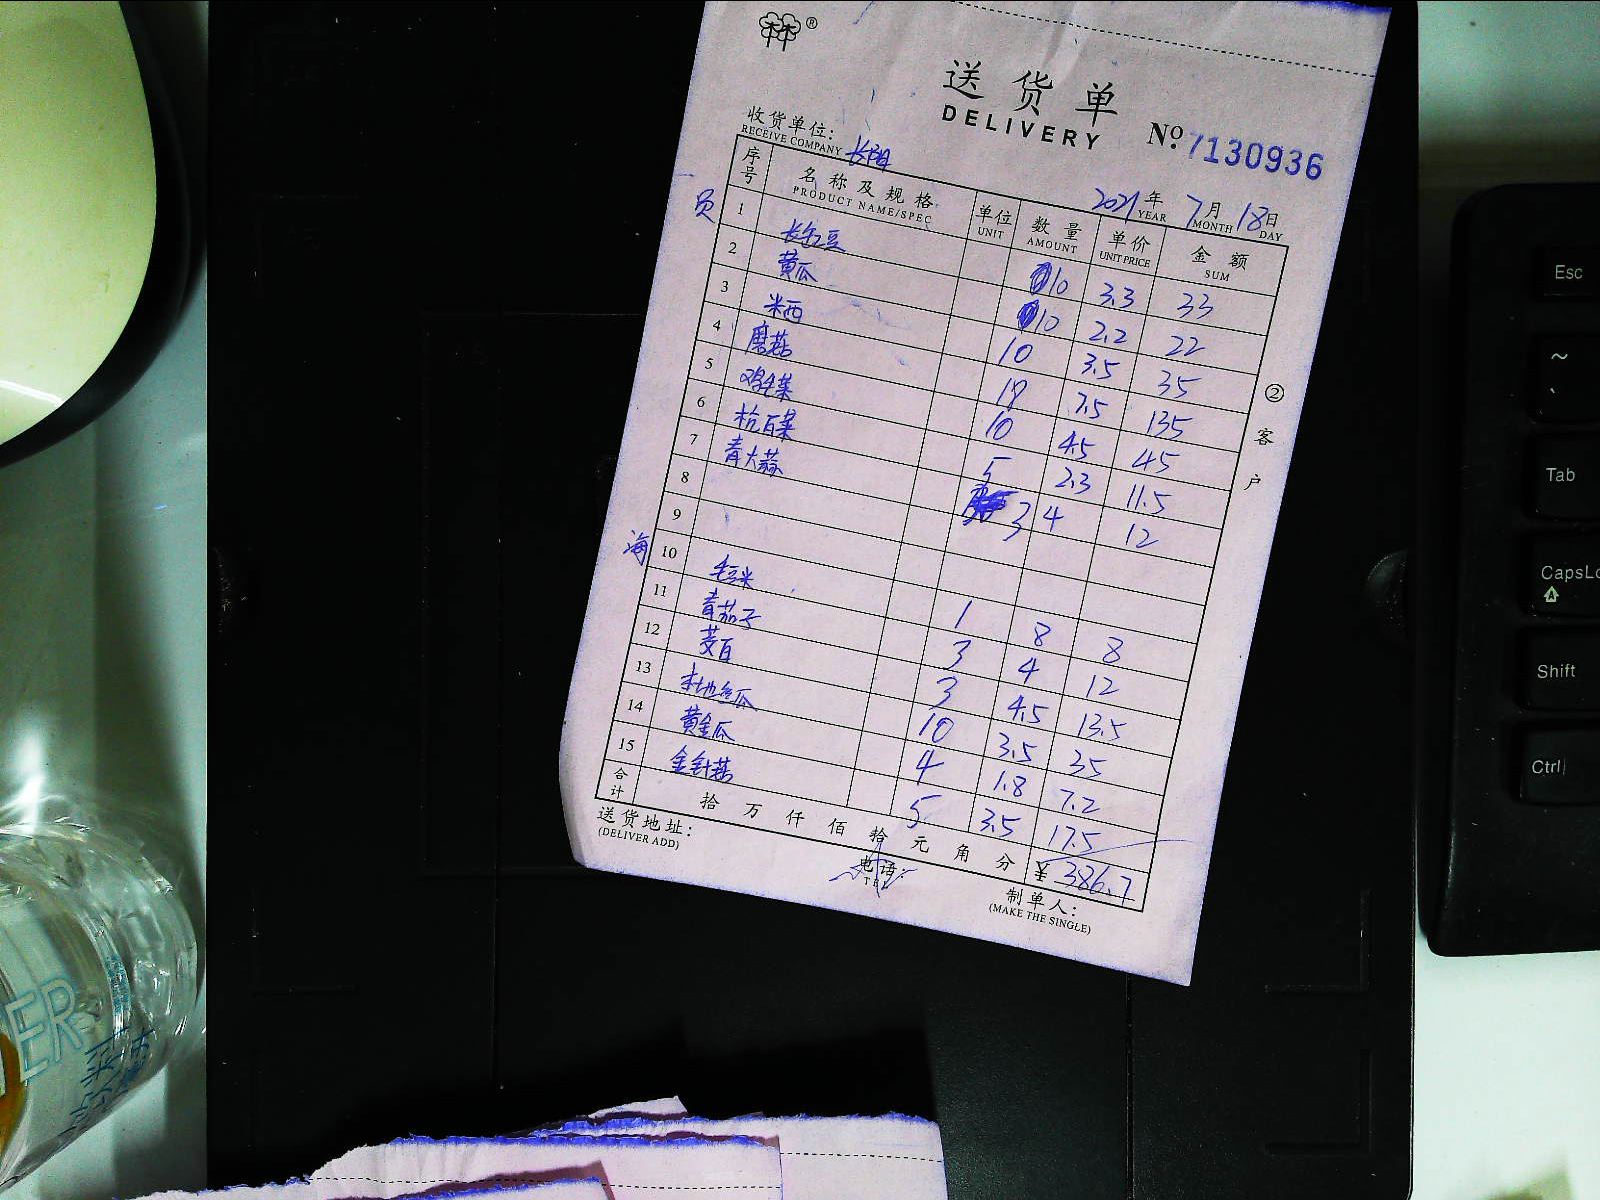 ®
送货单
DELIVERY
№ 7130936
收货单位: 长阳
RECEIVE COMPANY
2021年 7月 18日
YEAR MONTH DAY
序号 名称及规格 单位 数量 单价 金额
PRODUCT NAME/SPEC UNIT AMOUNT UNIT PRICE SUM
员
1 长红豆 10 3.3 33
2 黄瓜 10 2.2 22
3 米西 10 3.5 35
4 磨菇 7.5 135
5 鸡毛菜 10 4.5 45
6 杭百菜 5 2.3 11.5
7 青大蒜 3 4 12
8
9
海
10 毛豆米 1 8 8
11 青茄子 3 4 12
12 茭百 3 4.5 13.5
13 本地丝瓜 10 3.5 35
14 黄金瓜 4 1.8 7.2
15 金针菇 5 3.5 17.5
合计 拾 万 仟 佰 拾 元 角 分 ¥ 386.7
送货地址: 电话: 制单人:
(DELIVER ADD) TEL (MAKE THE SINGLE)
②客户
Esc
~
Tab
CapsLo
Shift
Ctrl
ER